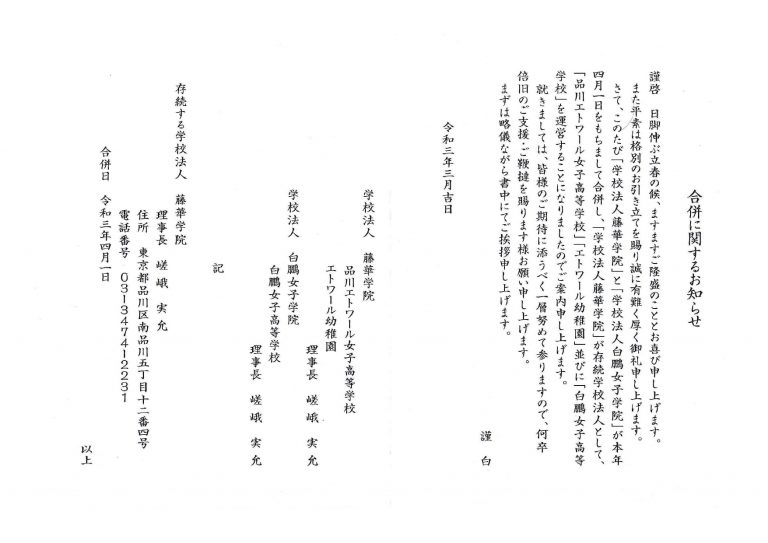 合併に関するお知らせ
謹啓　日脚伸ぶ立春の候、ますますご隆盛のこととお喜び申し上げます。
また平素は格別のお引き立てを賜り誠に有難く厚く御礼申し上げます。
さて、このたび「学校法人藤華学院」と「学校法人白鵬女子学院」が本年
四月一日をもちまして合併し、「学校法人藤華学院」が存続学校法人として、
「品川エトワール女子高等学校」「エトワール幼稚園」並びに「白鵬女子高等
学校」を運営することになりましたのでご案内申し上げます。
就きましては、皆様のご期待に添うべく一層努めて参りますので、何卒
倍旧のご支援・ご鞭撻を賜ります様お願い申し上げます。
まずは略儀ながら書中にてご挨拶申し上げます。
謹白
令和三年三月吉日
学校法人　藤華学院
品川エトワール女子高等学校
エトワール幼稚園
理事長　嵯峨　実允
学校法人　白鵬女子学院
白鵬女子高等学校
理事長　嵯峨　実允
記
存続する学校法人　藤華学院
理事長　嵯峨　実允
住所　東京都品川区南品川五丁目十二番四号
電話番号　０３１３４７４１２２３１
合併日　令和三年四月一日
以上